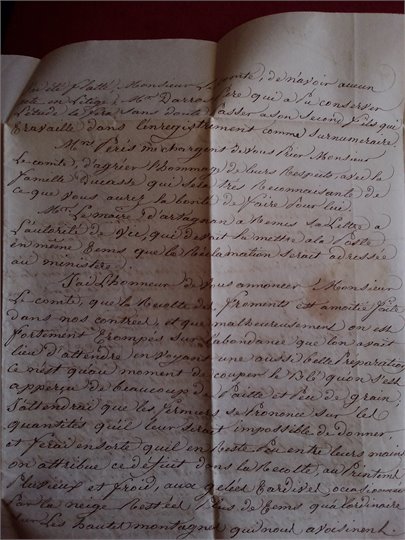 été flatté, Monsieur Le Comte, de n'avoir aucun
acte en Litige; Mr Darros Père qui a pu conserver
L'étude la fera sans doute Passer a son Second fils qui
travaille dans L'enregistrement comme surnumeraire.
Mrs Peris me chargent de vous Prier Monsieur
Le comte, d'agréer L'hommage de leurs Respects avec la
famille Ducasse qui sera très Reconnaissante de
ce que vous aurez la bonté de faire Pour lui
Mr Le maire d'artagnan a Remis sa Lettre a
L'autorité de Vic, qui devait la mettre a la Poste
en même tems que la Réclamation serait adressée
au ministère.
J'ai L'honneur de vous annoncer Monsieur
Le comte, que la Recolte des froments est a moitié faite
dans nos contrées, et que malheureusement on est
fortement Trompés sur L'abondance que l'on avait
lieu d'attendre en voyant une aussi belle Preparation
ce n'est qu'au moment de couper le Blé qu'on s'est
apperçu de beaucoup de Paille et Peu de grain.
J'attendrai que les fermiers se Prononce sur les
quantités qu'il leur serait impossible de donner,
et ferai en sorte qu'il en Reste Peu entre leurs mains
on attribue ce deficit dans la Recolte, au Printems
Pluvieux et froid, aux gelées tardives, occasionnées
Par la neige Restées Plus de tems qu'a l'ordinaire
sur Les hautes montagnes qui nous avoisinent.